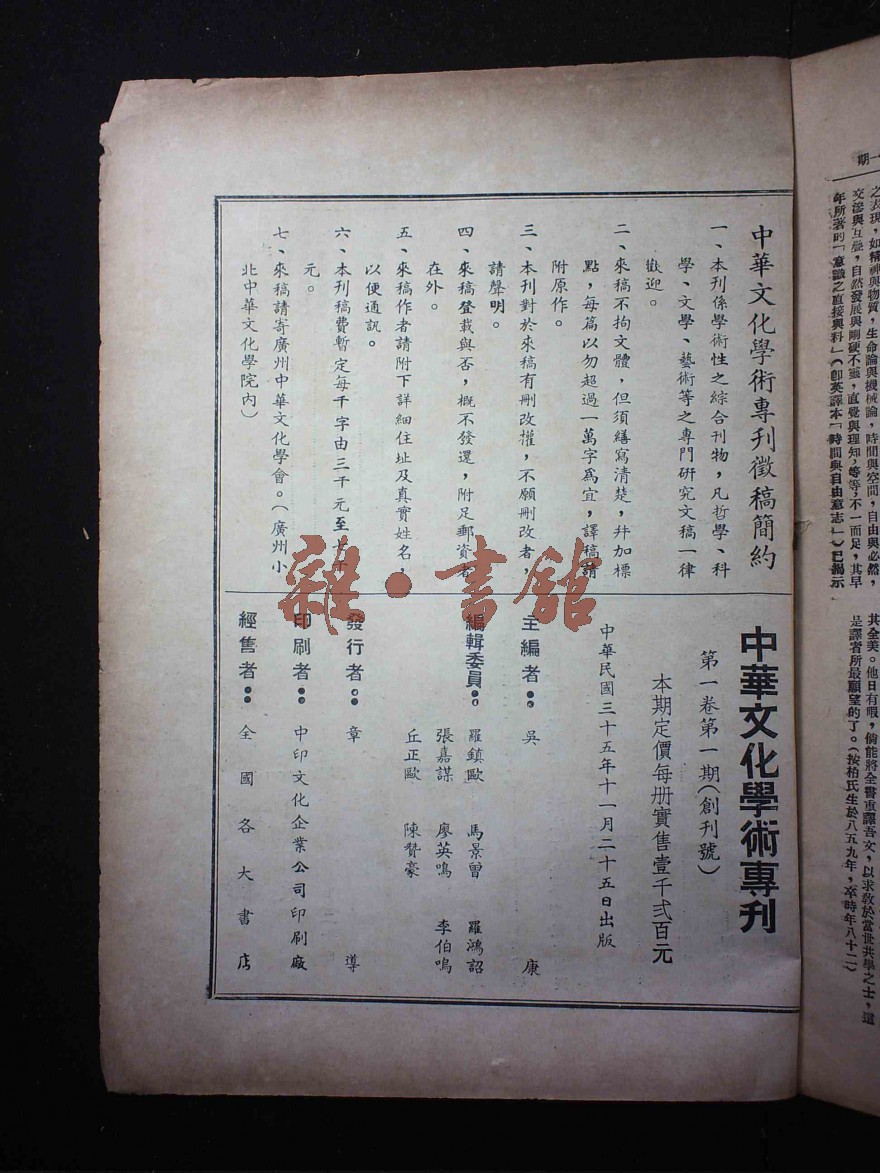 中華文化學術專刊徵稿簡約
一、本刊係學術性之綜合刊物，凡哲學、科
學、文學、藝術等之專門研究文稿一律
歡迎。
二、來稿不拘文體，但須繕寫清楚，幷加標
點，每篇以勿超過一萬字爲宜，譯稿請
附原作。
三、本刊對於來稿有刪改權，不願刪改者，
請聲明。
四、來稿登載與否，概不發還，附足郵資者
在外。
五、來稿作者請附下詳細住址及真實姓名，
以便通訊。
六、本刊稿費暫定每千字由三千元至 千
元。
七、來稿請寄廣州中華文化學會。（廣州小
北中華文化學院內）
中華文化學術專刊
第一卷第一期（創刊號）
本期定價每册實售壹千弍百元
中華民國三十五年十一月二十五日出版
主編者：吳康
編輯委員：羅鎮歐 馬景曾 羅鴻詔
張嘉謀 廖英鳴 李伯鳴
丘正歐 陳贊豪
發行者：章導
印刷者：中印文化企業公司印刷廠
經售者：全國各大書店
雜·書館
一期
之表現，如精神與物質，生命論與機械論，時間與空間，自由與必然，
交滲與互疊，自然發展與剛硬不靈，直覺與理知，等等，不一而足，其早
年所著的「意識之直接與料」（卽英譯本「時間與自由意志」）已揭示
其全美。他日有暇，倘能將全書重譯吾文，以求敎於當世共學之士，這
是譯者所最願望的了。（按柏氏生於八五九年，卒時年八十二）